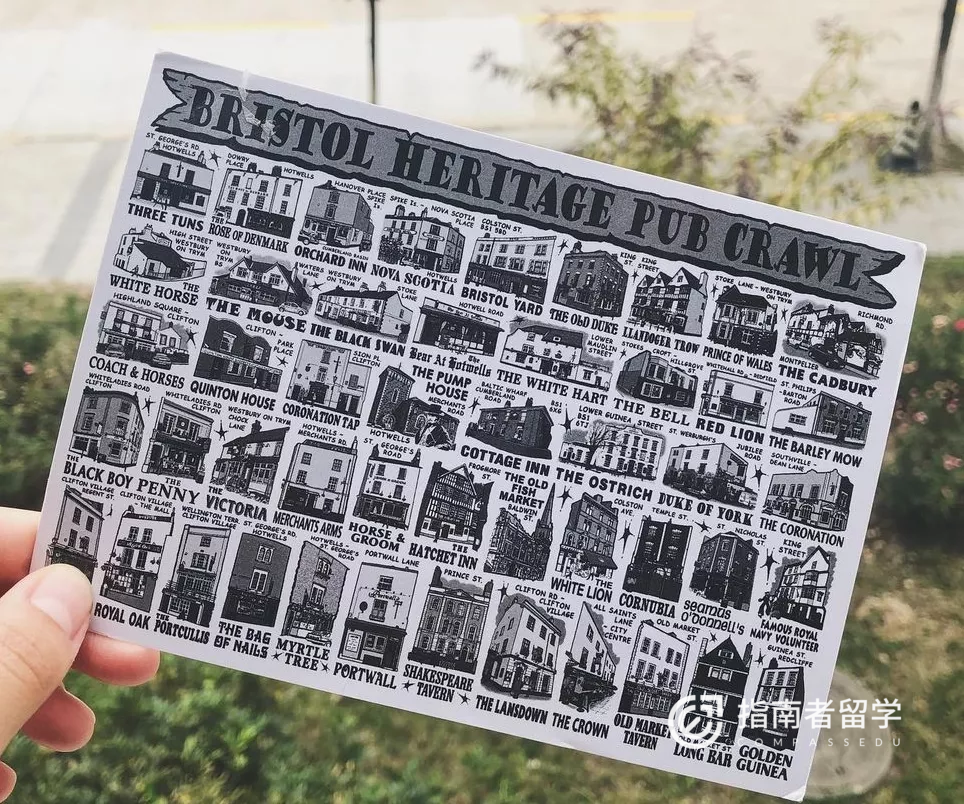 BRISTOL HERITAGE PUB CRAWL
ST. GEORGE'S RD.
HOTWELLS
THREE TUNS
DOWRY
PLACE
HOTWELLS
THE
ROSE OF DENMARK
HANOVER PLACE
SPIKE
Is.
CUMBERLAND BASIN
ORCHARD INN
SPIKE Is. - NOVA SCOTIA
PLACE
HOTWELLS
NOVA SCOTIA
COLSTON ST.
BS1 5BD
BRISTOL YARD
THE OLD DUKE
KING
STREET
KING
ST
LLANDOGER TROW
STOKE LANE - WESTBURY
ON TRYM
PRINCE OF WALES
RICHMOND
RD
MONTPELIER
THE CADBURY
HIGH STREET
WESTBURY
ON
TRYM
WHITE HORSE
WESTBURY
ON
TRYM
THE MOUSE
WATERS
LANE
WESTBURY
ON TRYM
THE BLACK SWAN
STOKE
LANE
HOTWELL ROAD
The
Bear At Hotwells
LOWER
MAUDLIN
STREET
THE WHITE HART
STOKES CROFT
HILLGROVE
THE BELL
WHITEHALL RD - REDFIELD
RED LION
ST. PHILIPS
- BARTON
ROAD
THE BARLEY MOW
HIGHLAND SQUARE -
CLIFTON
COACH & HORSES
CLIFTON -
PARK
PLACE
QUINTON HOUSE
SION PL
CLIFTON
CORONATION TAP
THE PUMP
HOUSE
MERCHANTS
ROAD
HOTWELLS
BALTIC WHARF
CUMBERLAND
ROAD
BS1
6XG
COTTAGE INN
LOWER GUINEA STREET
BS1
6TJ
THE OSTRICH
ST. WERBURGH'S
JUBILEE
ROAD
DUKE OF YORK
SOUTHVILLE -
DEAN LANE
THE CORONATION
WHITELADIES ROAD
CLIFTON
THE
BLACK BOY
WHITELADIES RD
CLIFTON
THE
PENNY
WESTBURY ON TRYM
CHOCK
LANE
THE
VICTORIA
HOTWELLS -
MERCHANTS RD.
MERCHANTS ARMS
ST. GEORGE'S
ROAD
HORSE &
GROOM
FROGMORE
ST.
THE
HATCHET INN
THE OLD
FISH
MARKET
BALDWIN
ST.
COLSTON
AVE
THE
WHITE LION
TEMPLE ST.
CORNUBIA
ST.
NICHOLAS
ST.
seamus
o'donnell's
KING
STREET
FAMOUS ROYAL
NAVY VOLUNTEER
CLIFTON VILLAGE
REGENT ST.
ROYAL OAK
CLIFTON VILLAGE
- THE MALL
THE
PORTCULLIS
WELLINGTON TERR.
CLIFTON VILLAGE
ST. GEORGE'S RD.
HOTWELLS
THE BAG
OF NAILS
HOTWELLS
ST. GEORGE'S
ROAD
MYRTLE
TREE
PORTWALL LANE
PORTWALL
PRINCE ST.
SHAKESPEARE
TAVERN
CLIFTON RD -
CLIFTON
VILLAGE
THE LANSDOWN
ALL SAINTS
LANE
- CITY
CENTRE
THE CROWN
OLD MARKET
ST.
OLD MARKET
TAVERN
LONG BAR
GUINEA ST.
REDCLIFFE
GOLDEN
GUINEA
指南者留学
COMPASSEDU